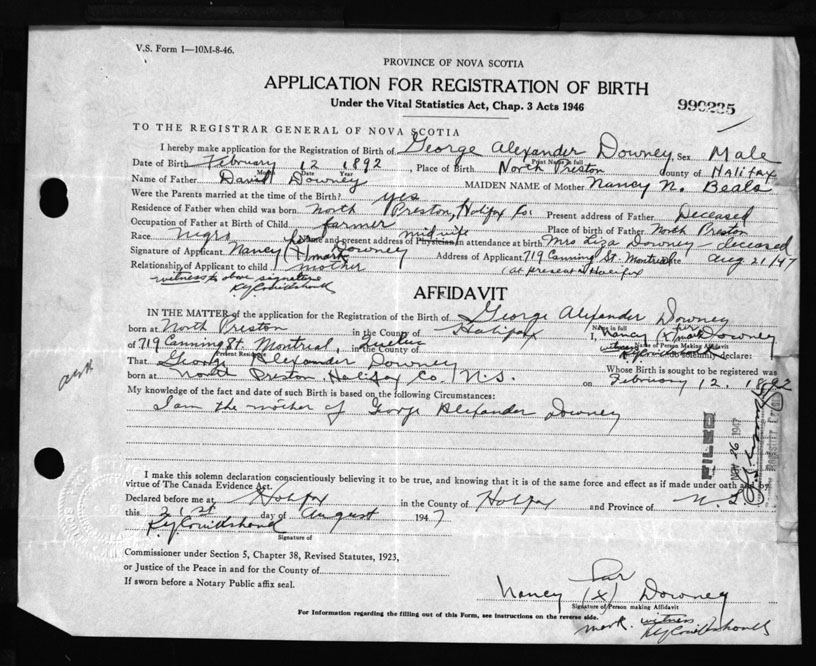 V.S. Form 1—10M-8-46.
PROVINCE OF NOVA SCOTIA
APPLICATION FOR REGISTRATION OF BIRTH
Under the Vital Statistics Act, Chap. 3 Acts 1946
990235
TO THE REGISTRAR GENERAL OF NOVA SCOTIA
I hereby make application for the Registration of Birth of George Alexander Downey, Sex Male
Print Name in full
Date of Birth February 12 1892, Place of Birth North Preston County of Halifax
Month Date Year
Name of Father David Downey MAIDEN NAME of Mother Nancy N. Beals
Were the Parents married at the time of the Birth? yes
Residence of Father when child was born North Preston, Halifax Co. Present address of Father Deceased
Occupation of Father at Birth of Child farmer Place of birth of Father North Preston
Race Negro Name and present address of Physician midwife in attendance at birth Mrs Liza Downey - deceased
Signature of Applicant Nancy her (X) mark Downey Address of Applicant 719 Canning St. Montreal Date Aug 21/47
Relationship of Applicant to child mother (at present in Halifax)
witness to above signature
AFFIDAVIT
IN THE MATTER of the application for the Registration of the Birth of George Alexander Downey
Name in full
born at North Preston in the County of Halifax I, Nancy her (X) mark Downey
Name of Person Making Affidavit
of 719 Canning St. Montreal, Quebec in the County of witness do solemnly declare:
Present Residence
That George Alexander Downey Whose Birth is sought to be registered was
born at North Preston, Halifax Co., N.S. on February 12, 1892
My knowledge of the fact and date of such Birth is based on the following Circumstances:
I am the mother of George Alexander Downey
FILED
I make this solemn declaration conscientiously believing it to be true, and knowing that it is of the same force and effect as if made under oath and by
virtue of The Canada Evidence Act.
Declared before me at Halifax in the County of Halifax and Province of N.S.
this 21st day of August 1947
Signature of
Commissioner under Section 5, Chapter 38, Revised Statutes, 1923,
or Justice of the Peace in and for the County of
If sworn before a Notary Public affix seal.
Nancy her (X) Downey
Signature of Person making Affidavit
mark. witness
For Information regarding the filling out of this Form, see instructions on the reverse side.